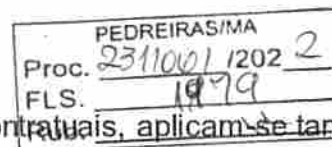 PEDREIRAS/MA
Proc. 2311001 /202 2
FLS. 1979
ntratuais, aplicam-se tam